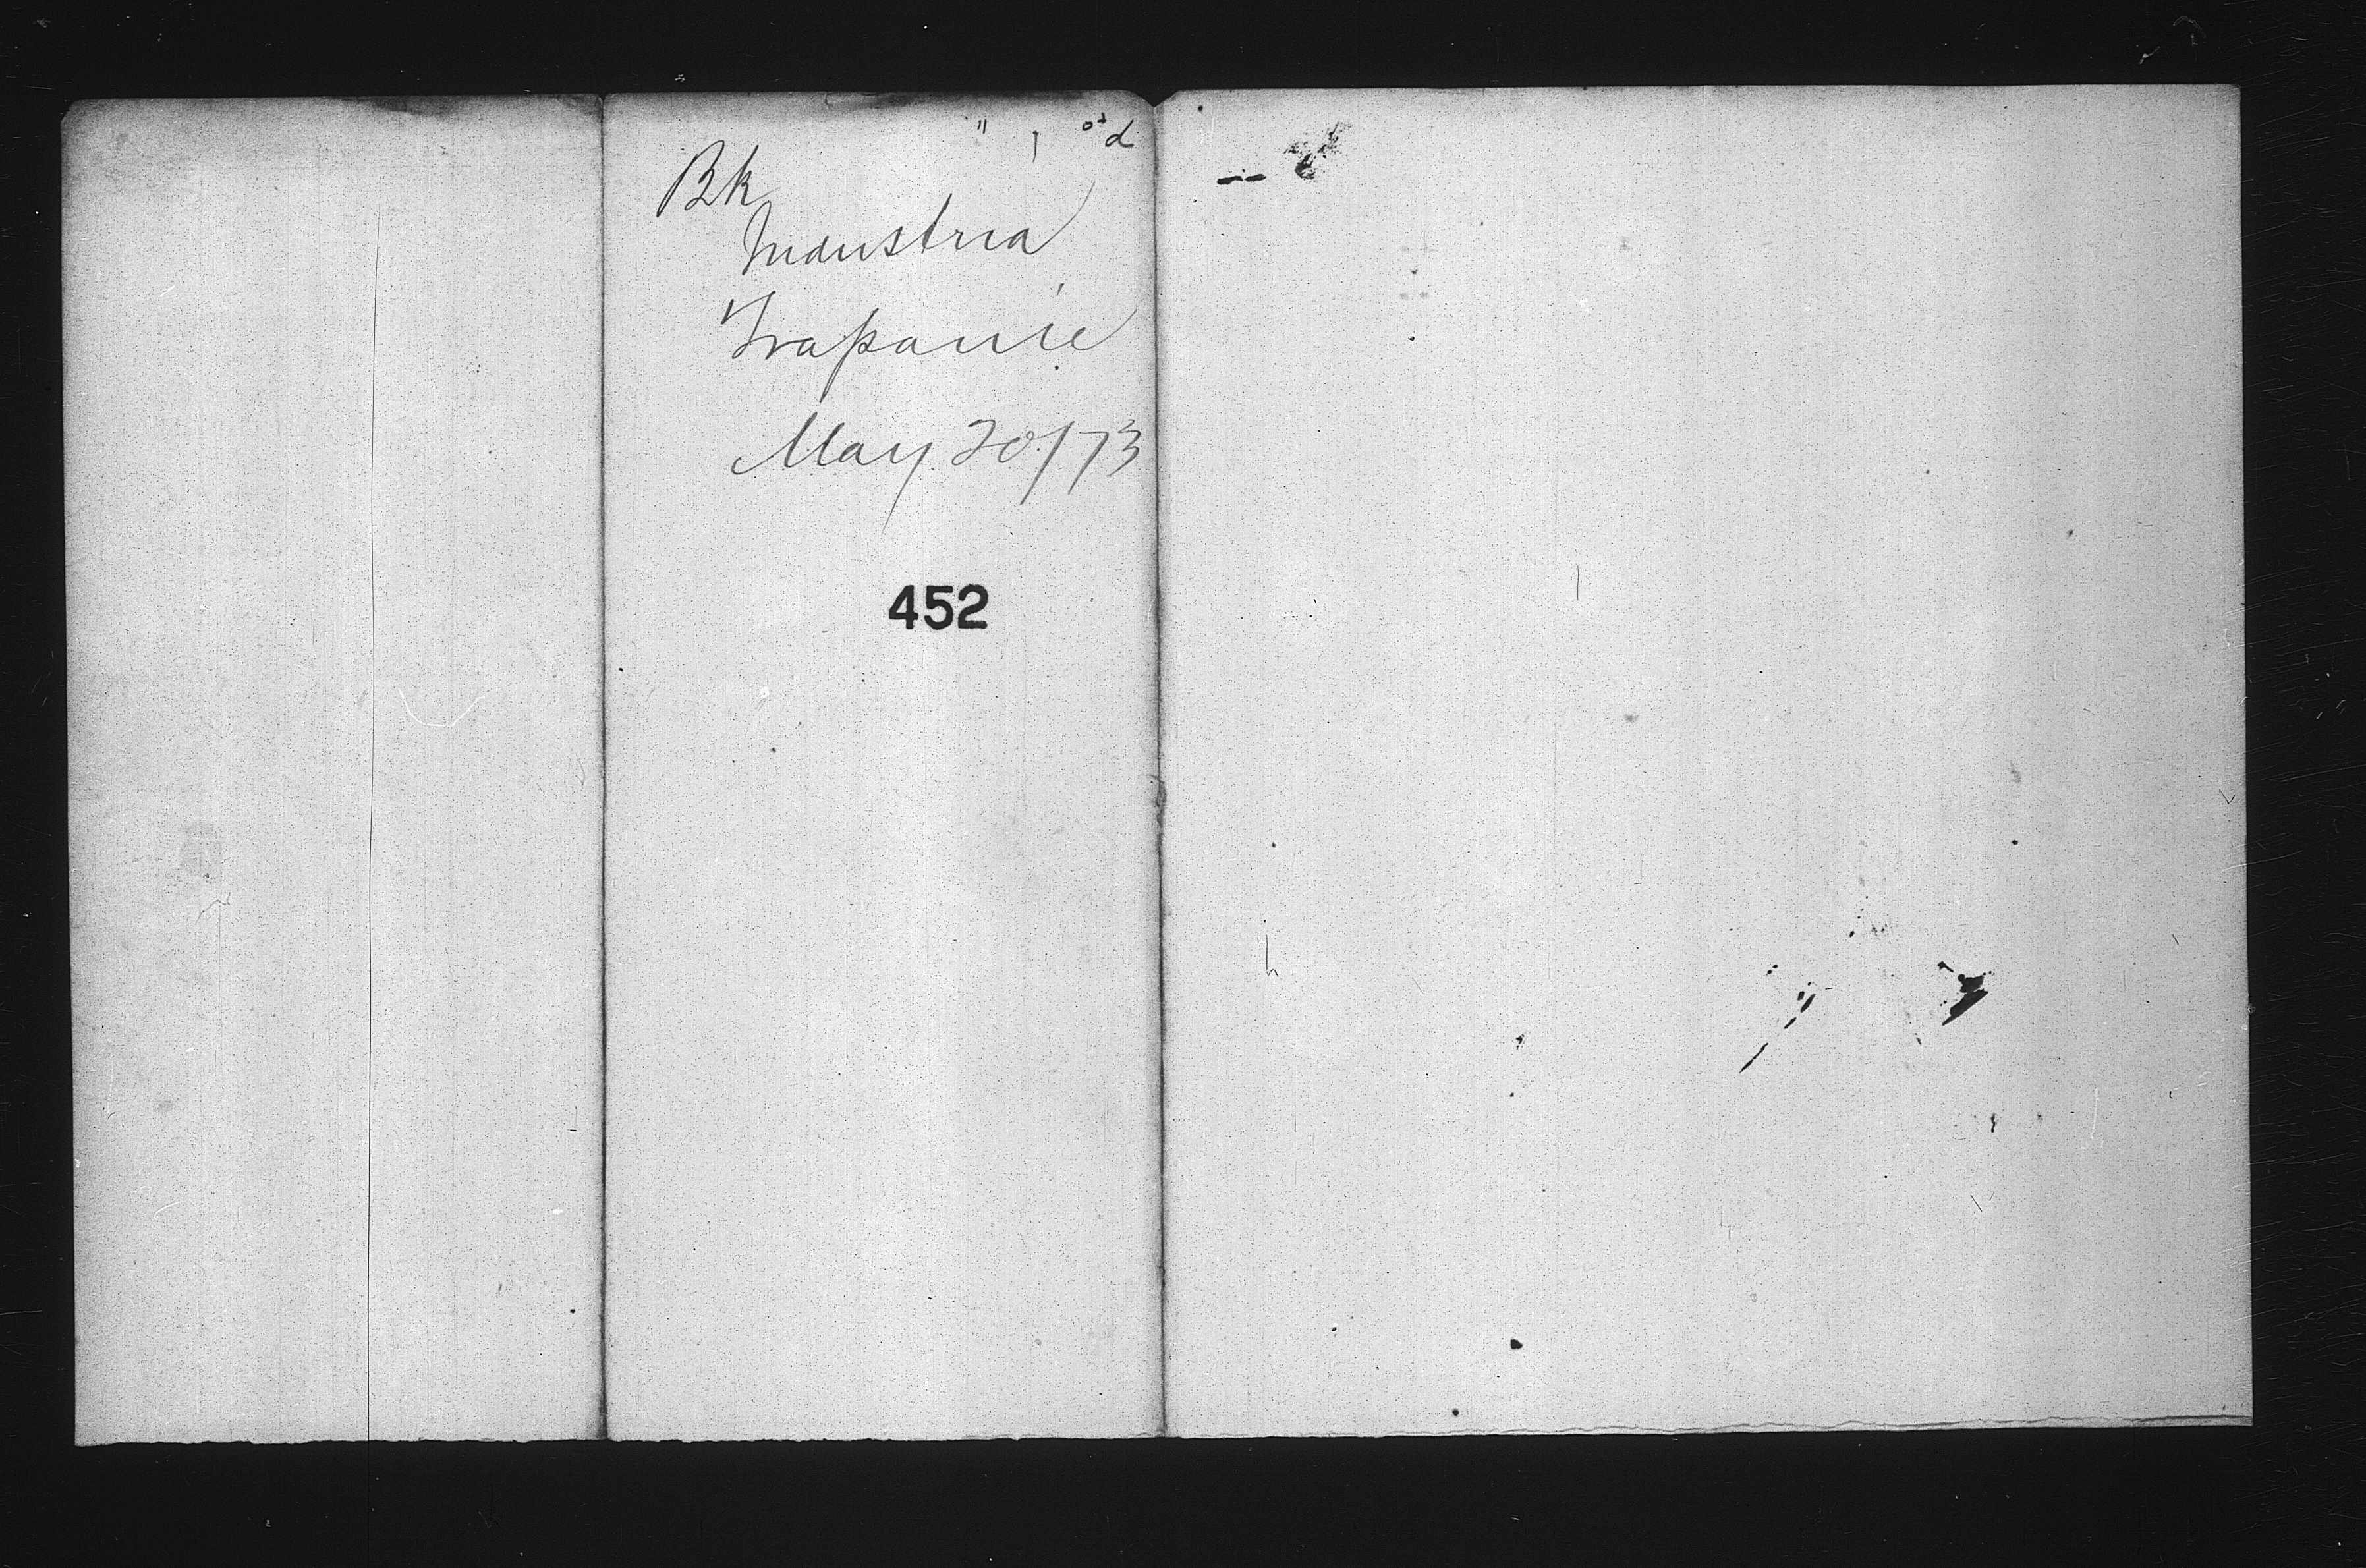 Bk
Industria
Trapanie
May 20/73
452